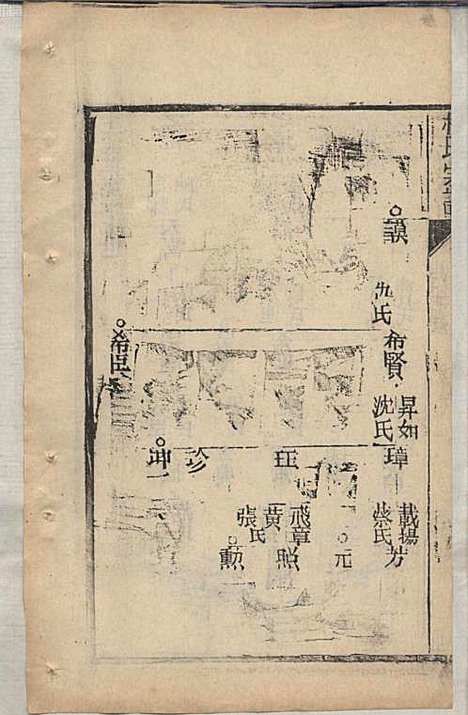 氏宗
謨
仇氏
希賢
昇如
沈氏
璋
載揚
蔡氏
芳
元
珏
戒章
黄氏
張氏
照
勲
珍
坤
希臣